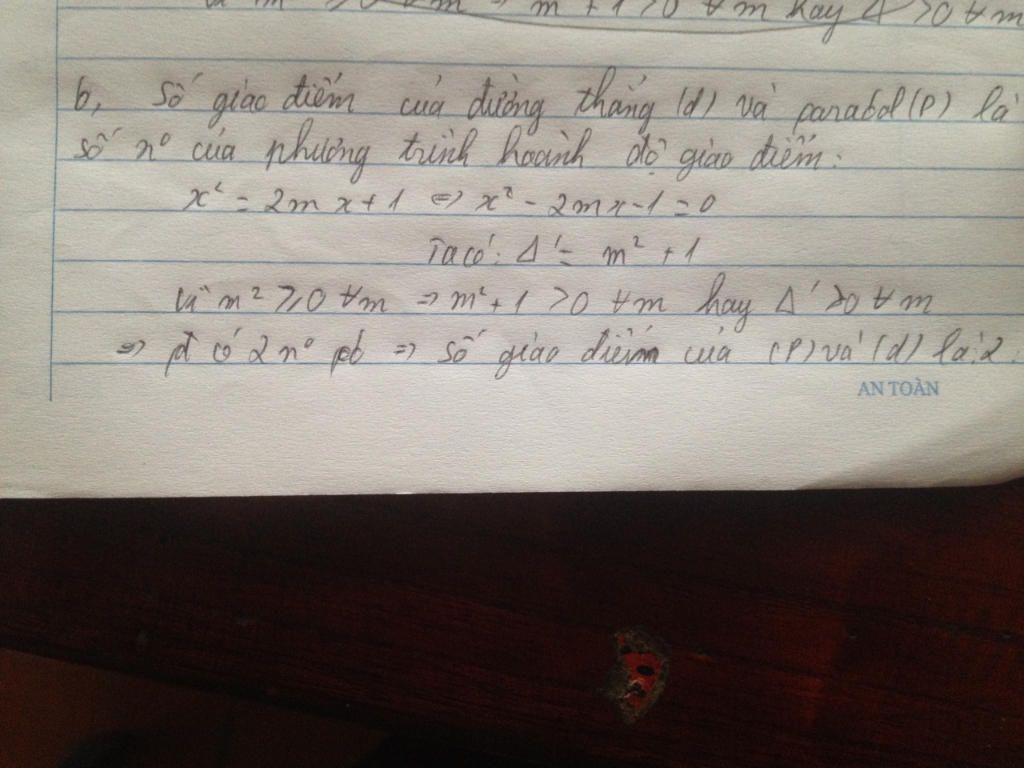 m² ≥ 0 ∀m ⇒ m² + 1 > 0 ∀m hay Δ' > 0 ∀m
b, Số giao điểm của đường thẳng (d) và parabol (P) là
số n° của phương trình hoành độ giao điểm:
x² = 2mx + 1 ⇔ x² - 2mx - 1 = 0
Ta có: Δ' = m² + 1
Vì m² ≥ 0 ∀m ⇒ m² + 1 > 0 ∀m hay Δ' > 0 ∀m
⇒ pt có 2 n° pb ⇒ số giao điểm của (P) và (d) là: 2.
AN TOÀN